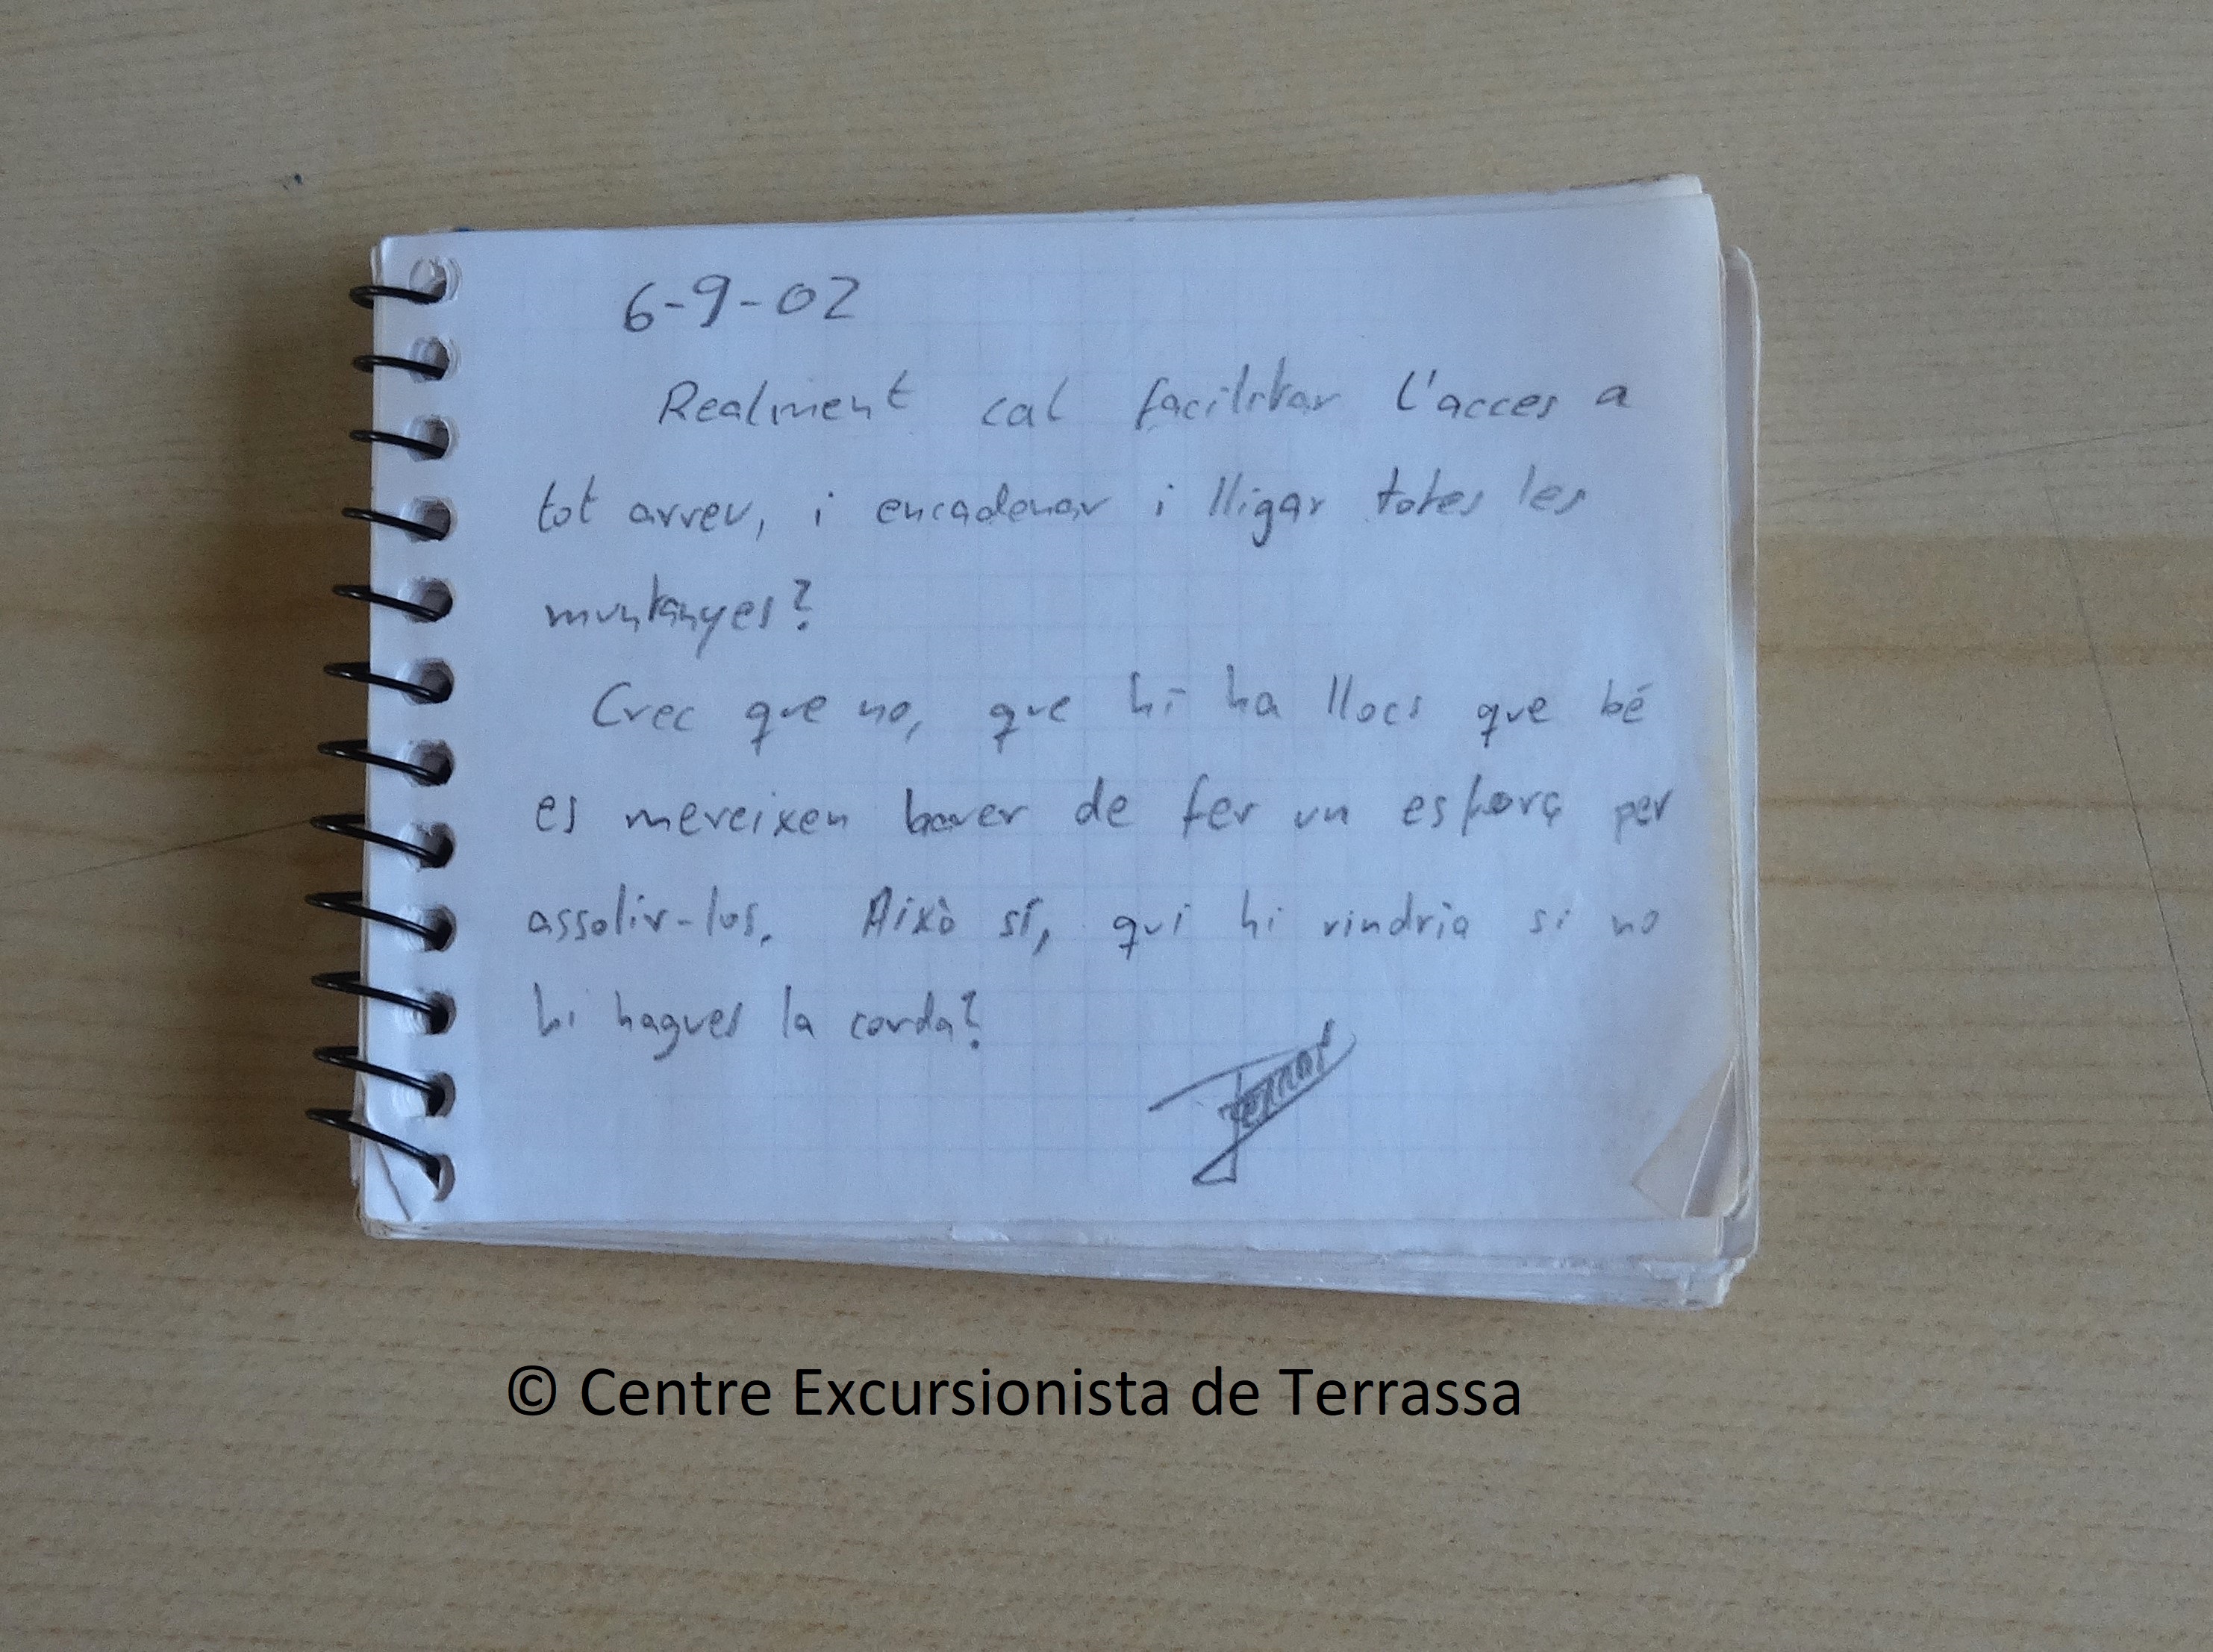 6-9-02
Realment cal facilitar l'acces a
tot arreu, i encadenar i lligar totes les
muntanyes?
Crec que no, que hi ha llocs que bé
es mereixen haver de fer un esforç per
assolir-los. Això sí, qui hi vindria si no
hi hagues la corda?
© Centre Excursionista de Terrassa